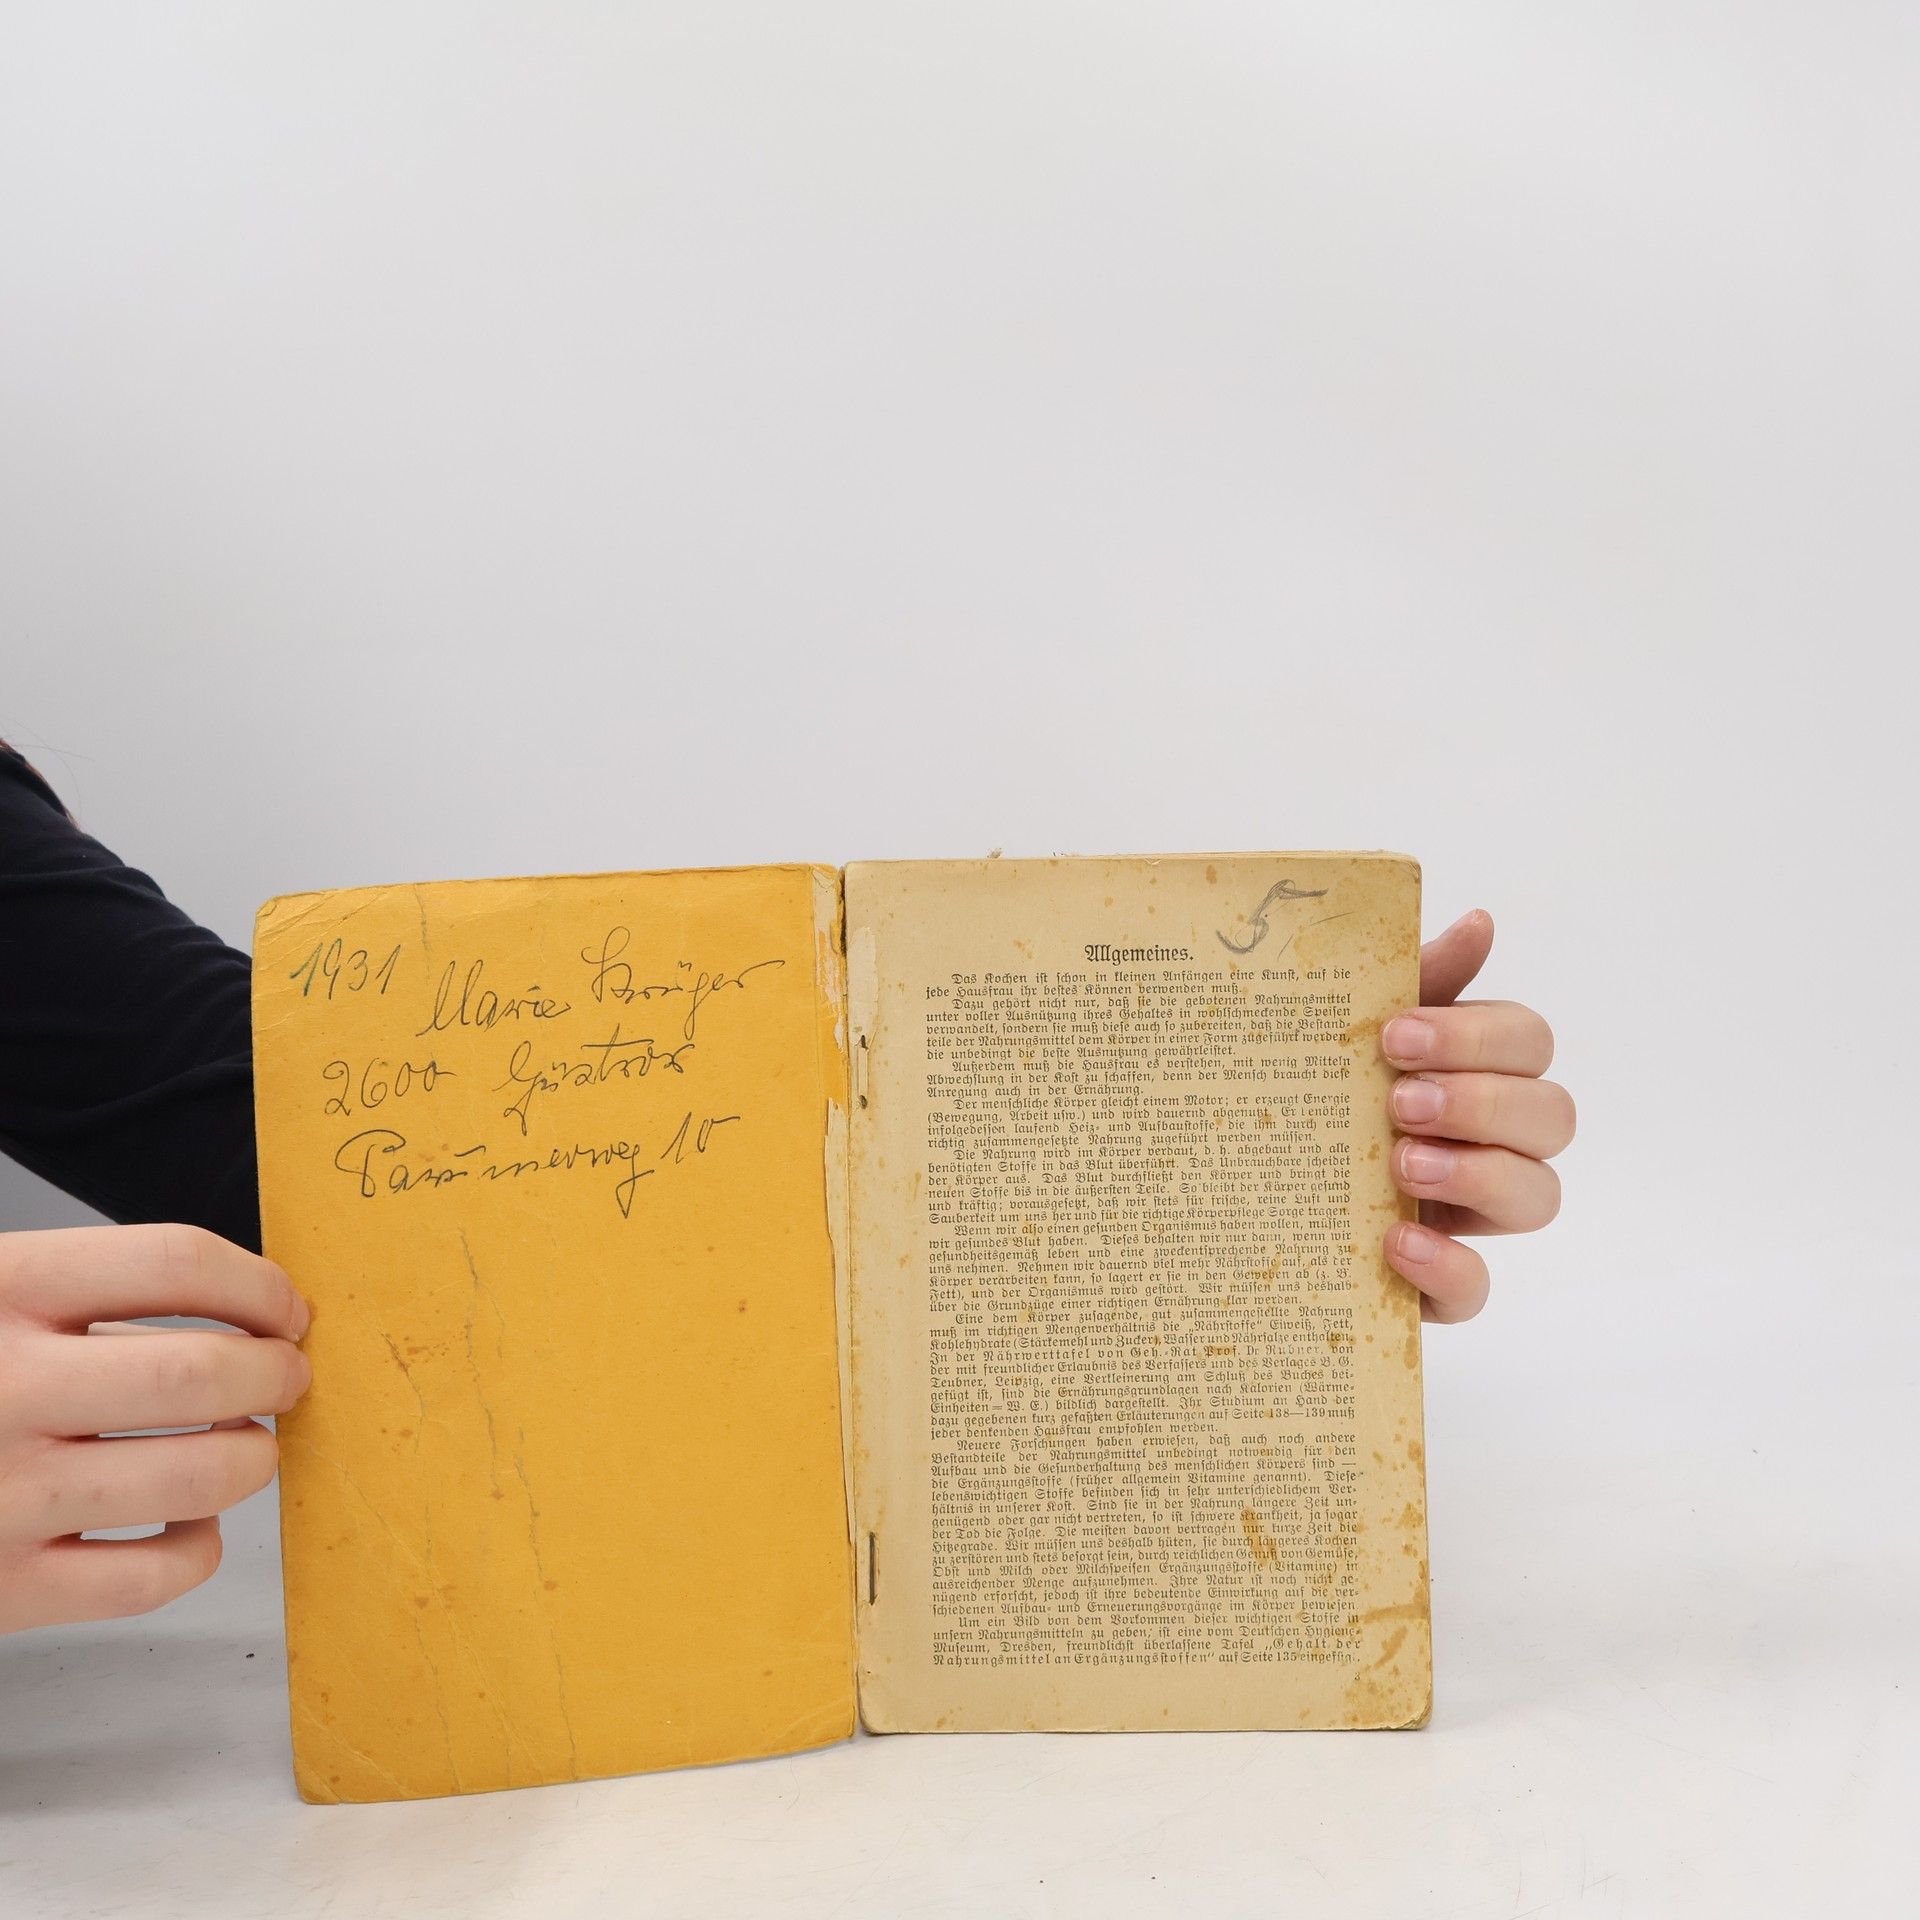 1931
Marie Krüger
2600 Güstrow
Parumerweg 10
5,-
Allgemeines.
Das Kochen ist schon in kleinen Anfängen eine Kunst, auf die
jede Hausfrau ihr bestes Können verwenden muß.
Dazu gehört nicht nur, daß sie die gebotenen Nahrungsmittel
unter voller Ausnützung ihres Gehaltes in wohlschmeckende Speisen
verwandelt, sondern sie muß diese auch so zubereiten, daß die Bestand-
teile der Nahrungsmittel dem Körper in einer Form zugeführt werden,
die unbedingt die beste Ausnutzung gewährleistet.
Außerdem muß die Hausfrau es verstehen, mit wenig Mitteln
Abwechslung in der Kost zu schaffen, denn der Mensch braucht diese
Anregung auch in der Ernährung.
Der menschliche Körper gleicht einem Motor; er erzeugt Energie
(Bewegung, Arbeit usw.) und wird dauernd abgenutzt. Er benötigt
infolgedessen laufend Heiz- und Aufbaustoffe, die ihm durch eine
richtig zusammengesetzte Nahrung zugeführt werden müssen.
Die Nahrung wird im Körper verdaut, d. h. abgebaut und alle
benötigten Stoffe in das Blut überführt. Das Unbrauchbare scheidet
der Körper aus. Das Blut durchfließt den Körper und bringt die
neuen Stoffe bis in die äußersten Teile. So bleibt der Körper gesund
und kräftig; vorausgesetzt, daß wir stets für frische, reine Luft und
Sauberkeit um uns her und für die richtige Körperpflege Sorge tragen.
Wenn wir also einen gesunden Organismus haben wollen, müssen
wir gesundes Blut haben. Dieses behalten wir nur dann, wenn wir
gesundheitsgemäß leben und eine zweckentsprechende Nahrung zu
uns nehmen. Nehmen wir dauernd viel mehr Nährstoffe auf, als der
Körper verarbeiten kann, so lagert er sie in den Geweben ab (z. B.
Fett), und der Organismus wird gestört. Wir müssen uns deshalb
über die Grundzüge einer richtigen Ernährung klar werden.
Eine dem Körper zusagende, gut zusammengestellte Nahrung
muß im richtigen Mengenverhältnis die „Nährstoffe“ Eiweiß, Fett,
Kohlehydrate (Stärkemehl und Zucker), Wasser und Nährsalze enthalten.
In der Nährwerttafel von Geh.-Rat Prof. Dr Rubner, von
der mit freundlicher Erlaubnis des Verfassers und des Verlages B. G.
Teubner, Leipzig, eine Verkleinerung am Schluß des Buches bei-
gefügt ist, sind die Ernährungsgrundlagen nach Kalorien (Wärme-
Einheiten = W. E.) bildlich dargestellt. Ihr Studium an Hand der
dazu gegebenen kurz gefaßten Erläuterungen auf Seite 138—139 muß
jeder denkenden Hausfrau empfohlen werden.
Neuere Forschungen haben erwiesen, daß auch noch andere
Bestandteile der Nahrungsmittel unbedingt notwendig für den
Aufbau und die Gesunderhaltung des menschlichen Körpers sind —
die Ergänzungsstoffe (früher allgemein Vitamine genannt). Diese
lebenswichtigen Stoffe befinden sich in sehr unterschiedlichem Ver-
hältnis in unserer Kost. Sind sie in der Nahrung längere Zeit un-
genügend oder gar nicht vertreten, so ist schwere Krankheit, ja sogar
der Tod die Folge. Die meisten davon vertragen nur kurze Zeit die
Hitzegrade. Wir müssen uns deshalb hüten, sie durch längeres Kochen
zu zerstören und stets besorgt sein, durch reichlichen Genuß von Gemüse,
Obst und Milch oder Milchspeisen Ergänzungsstoffe (Vitamine) in
ausreichender Menge aufzunehmen. Ihre Natur ist noch nicht ge-
nügend erforscht, jedoch ist ihre bedeutende Einwirkung auf die ver-
schiedenen Aufbau- und Erneuerungsvorgänge im Körper bewiesen
Um ein Bild von dem Vorkommen dieser wichtigen Stoffe in
unsern Nahrungsmitteln zu geben, ist eine vom Deutschen Hygiene-
Museum, Dresden, freundlichst überlassene Tafel „Gehalt der
Nahrungsmittel an Ergänzungsstoffen“ auf Seite 135 eingefügt.
3